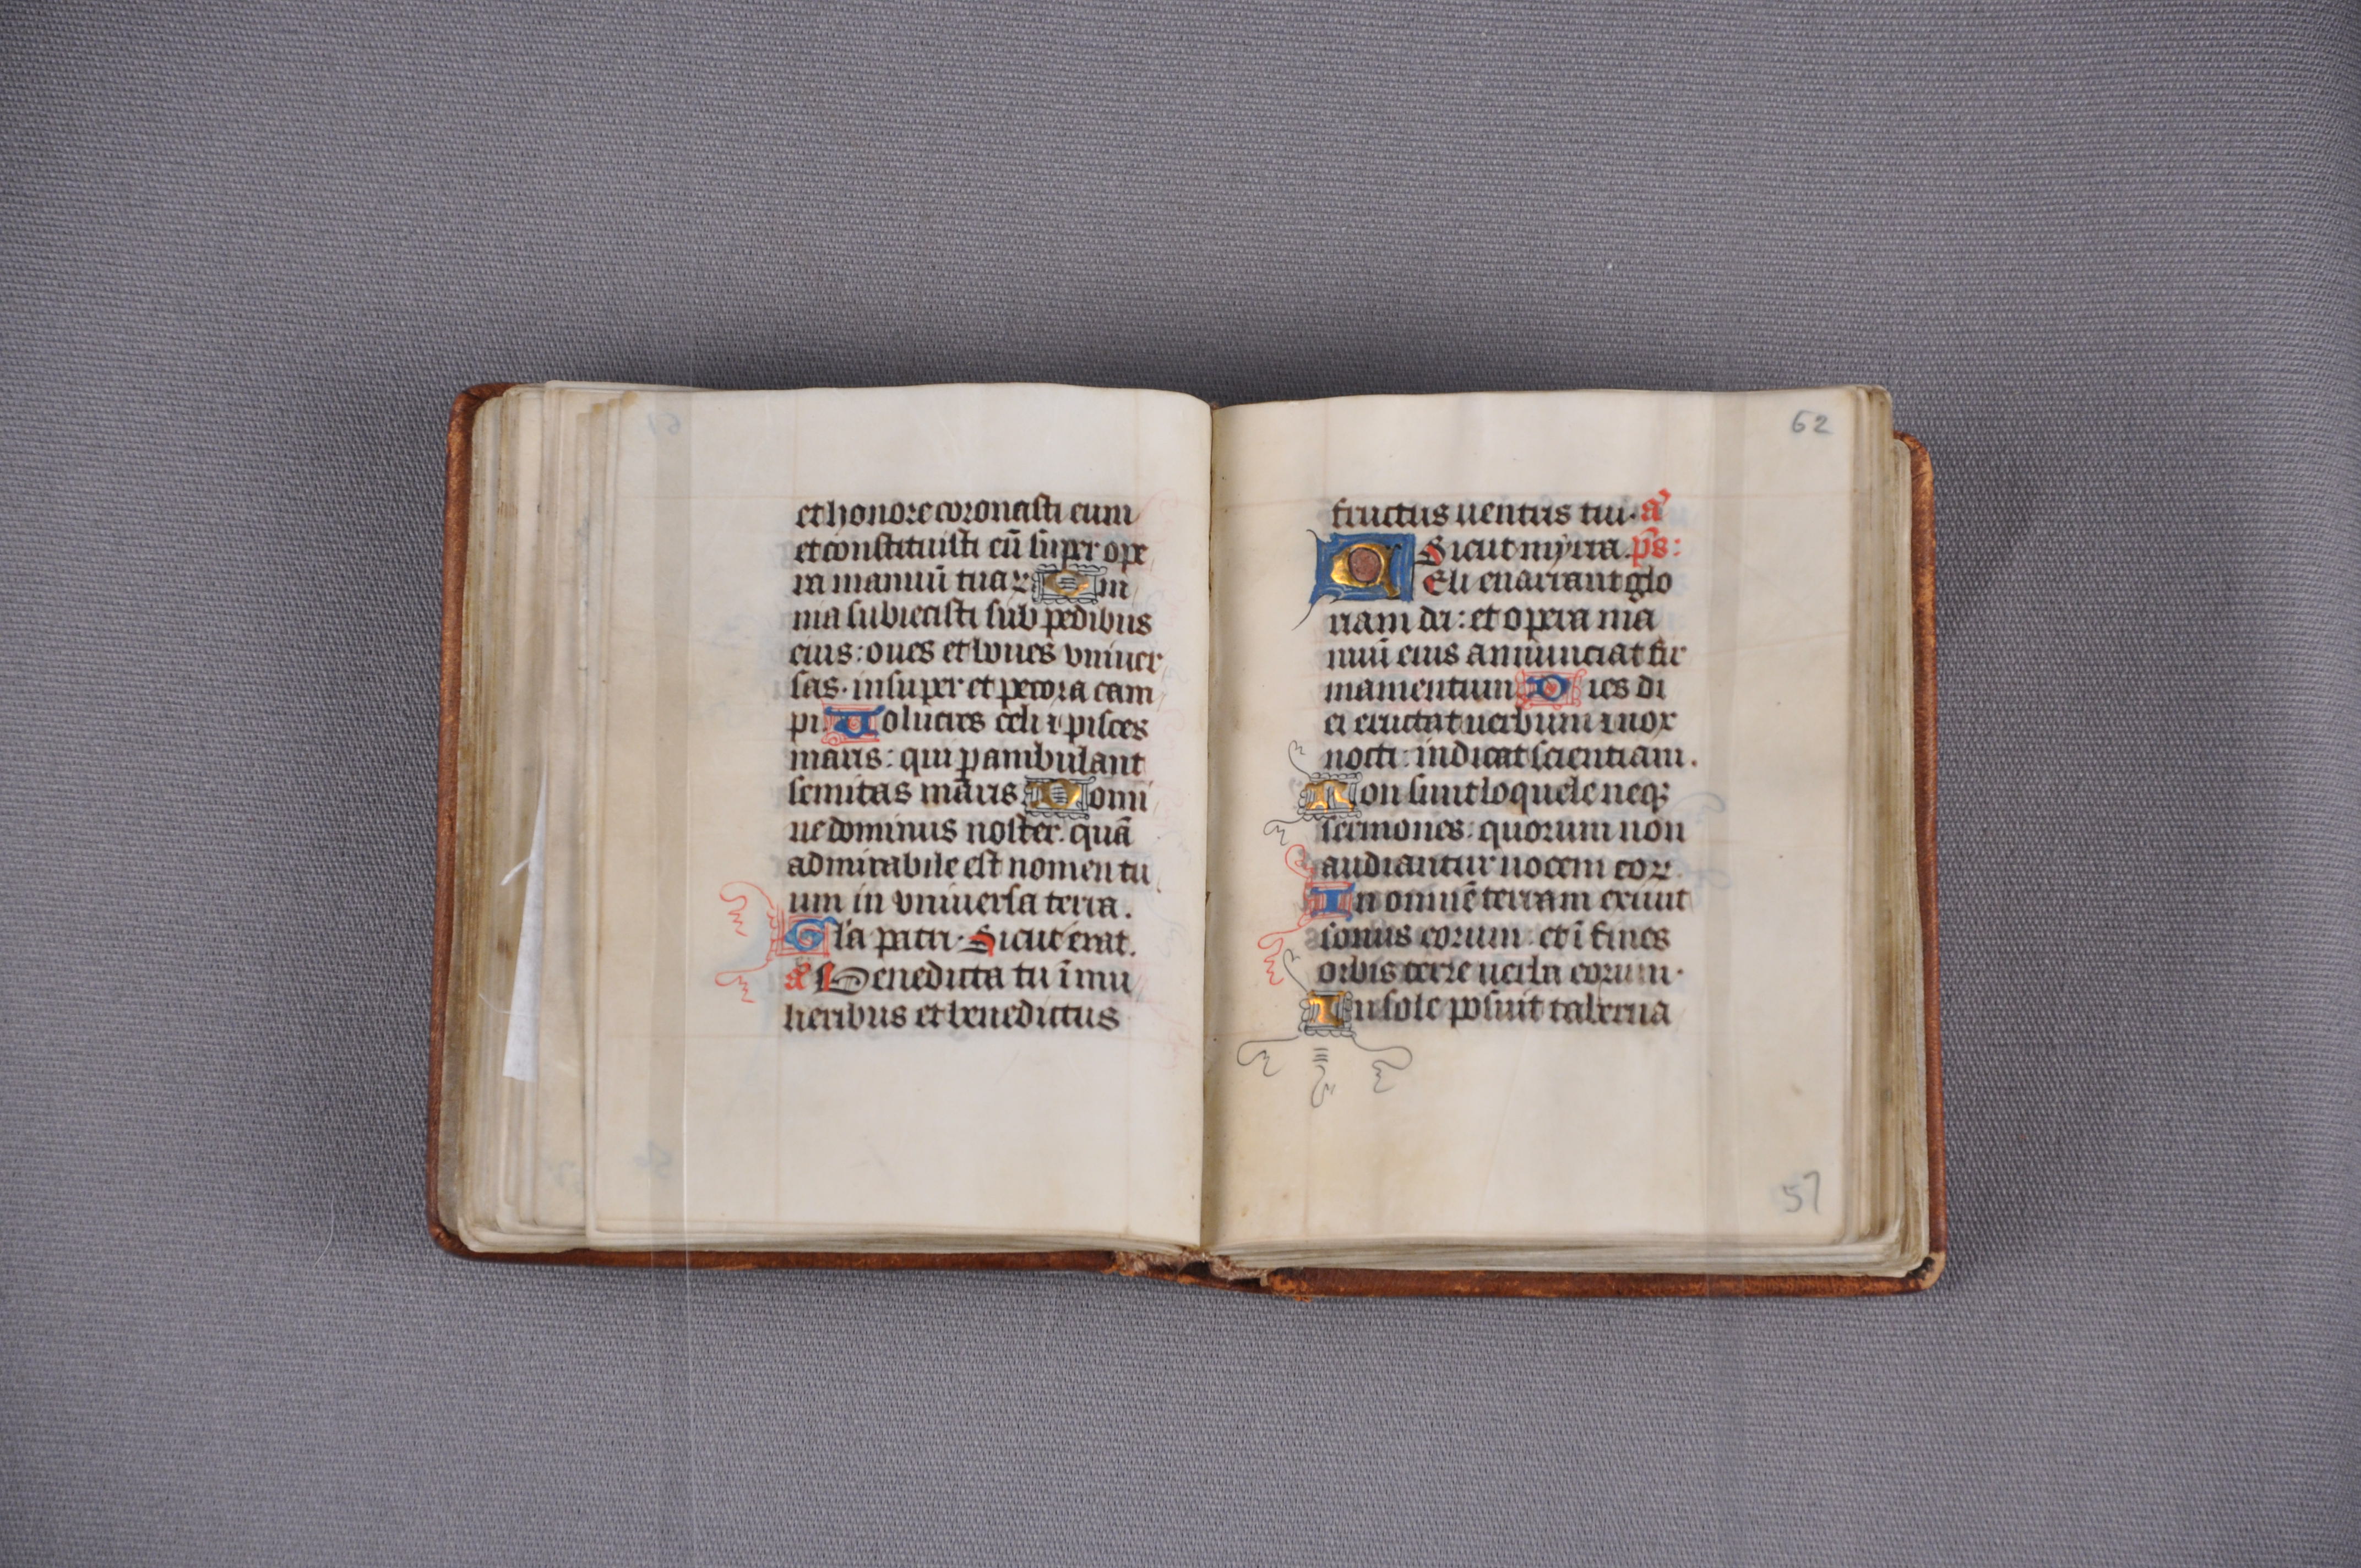 et honore coronasti eum
et constituisti eū super ope
ra manuū tuaꝝ. Om
nia subiecisti sub pedibus
eius: oues et boues vniuer
sas. insuper et pecora cam
pi. Uolucres celi ⁊ pisces
maris: qui ꝑambulant
semitas maris. Domi
ne dominus noster: quā
admirabile est nomen tu
um in vniuersa terra.
Gła patri. Sicut erat.
a᷑ Benedicta tu ī mu
lieribus et benedictus
62
fructus uentris tui. a᷑
Sicut myrra. p̄s:
Celi enarrant glo
riam dei: et opera ma
nuū eius annunciat fir
mamentum. Dies di
ei eructat uerbum ⁊ nox
nocti: indicat scientiam.
Non sunt loquele neqꝫ
sermones: quorum non
audiantur uocem eoꝝ.
In omnē terram exiuit
sonus eorum: et ī fines
orbis terre uerba eorum.
In sole posuit taberna
57